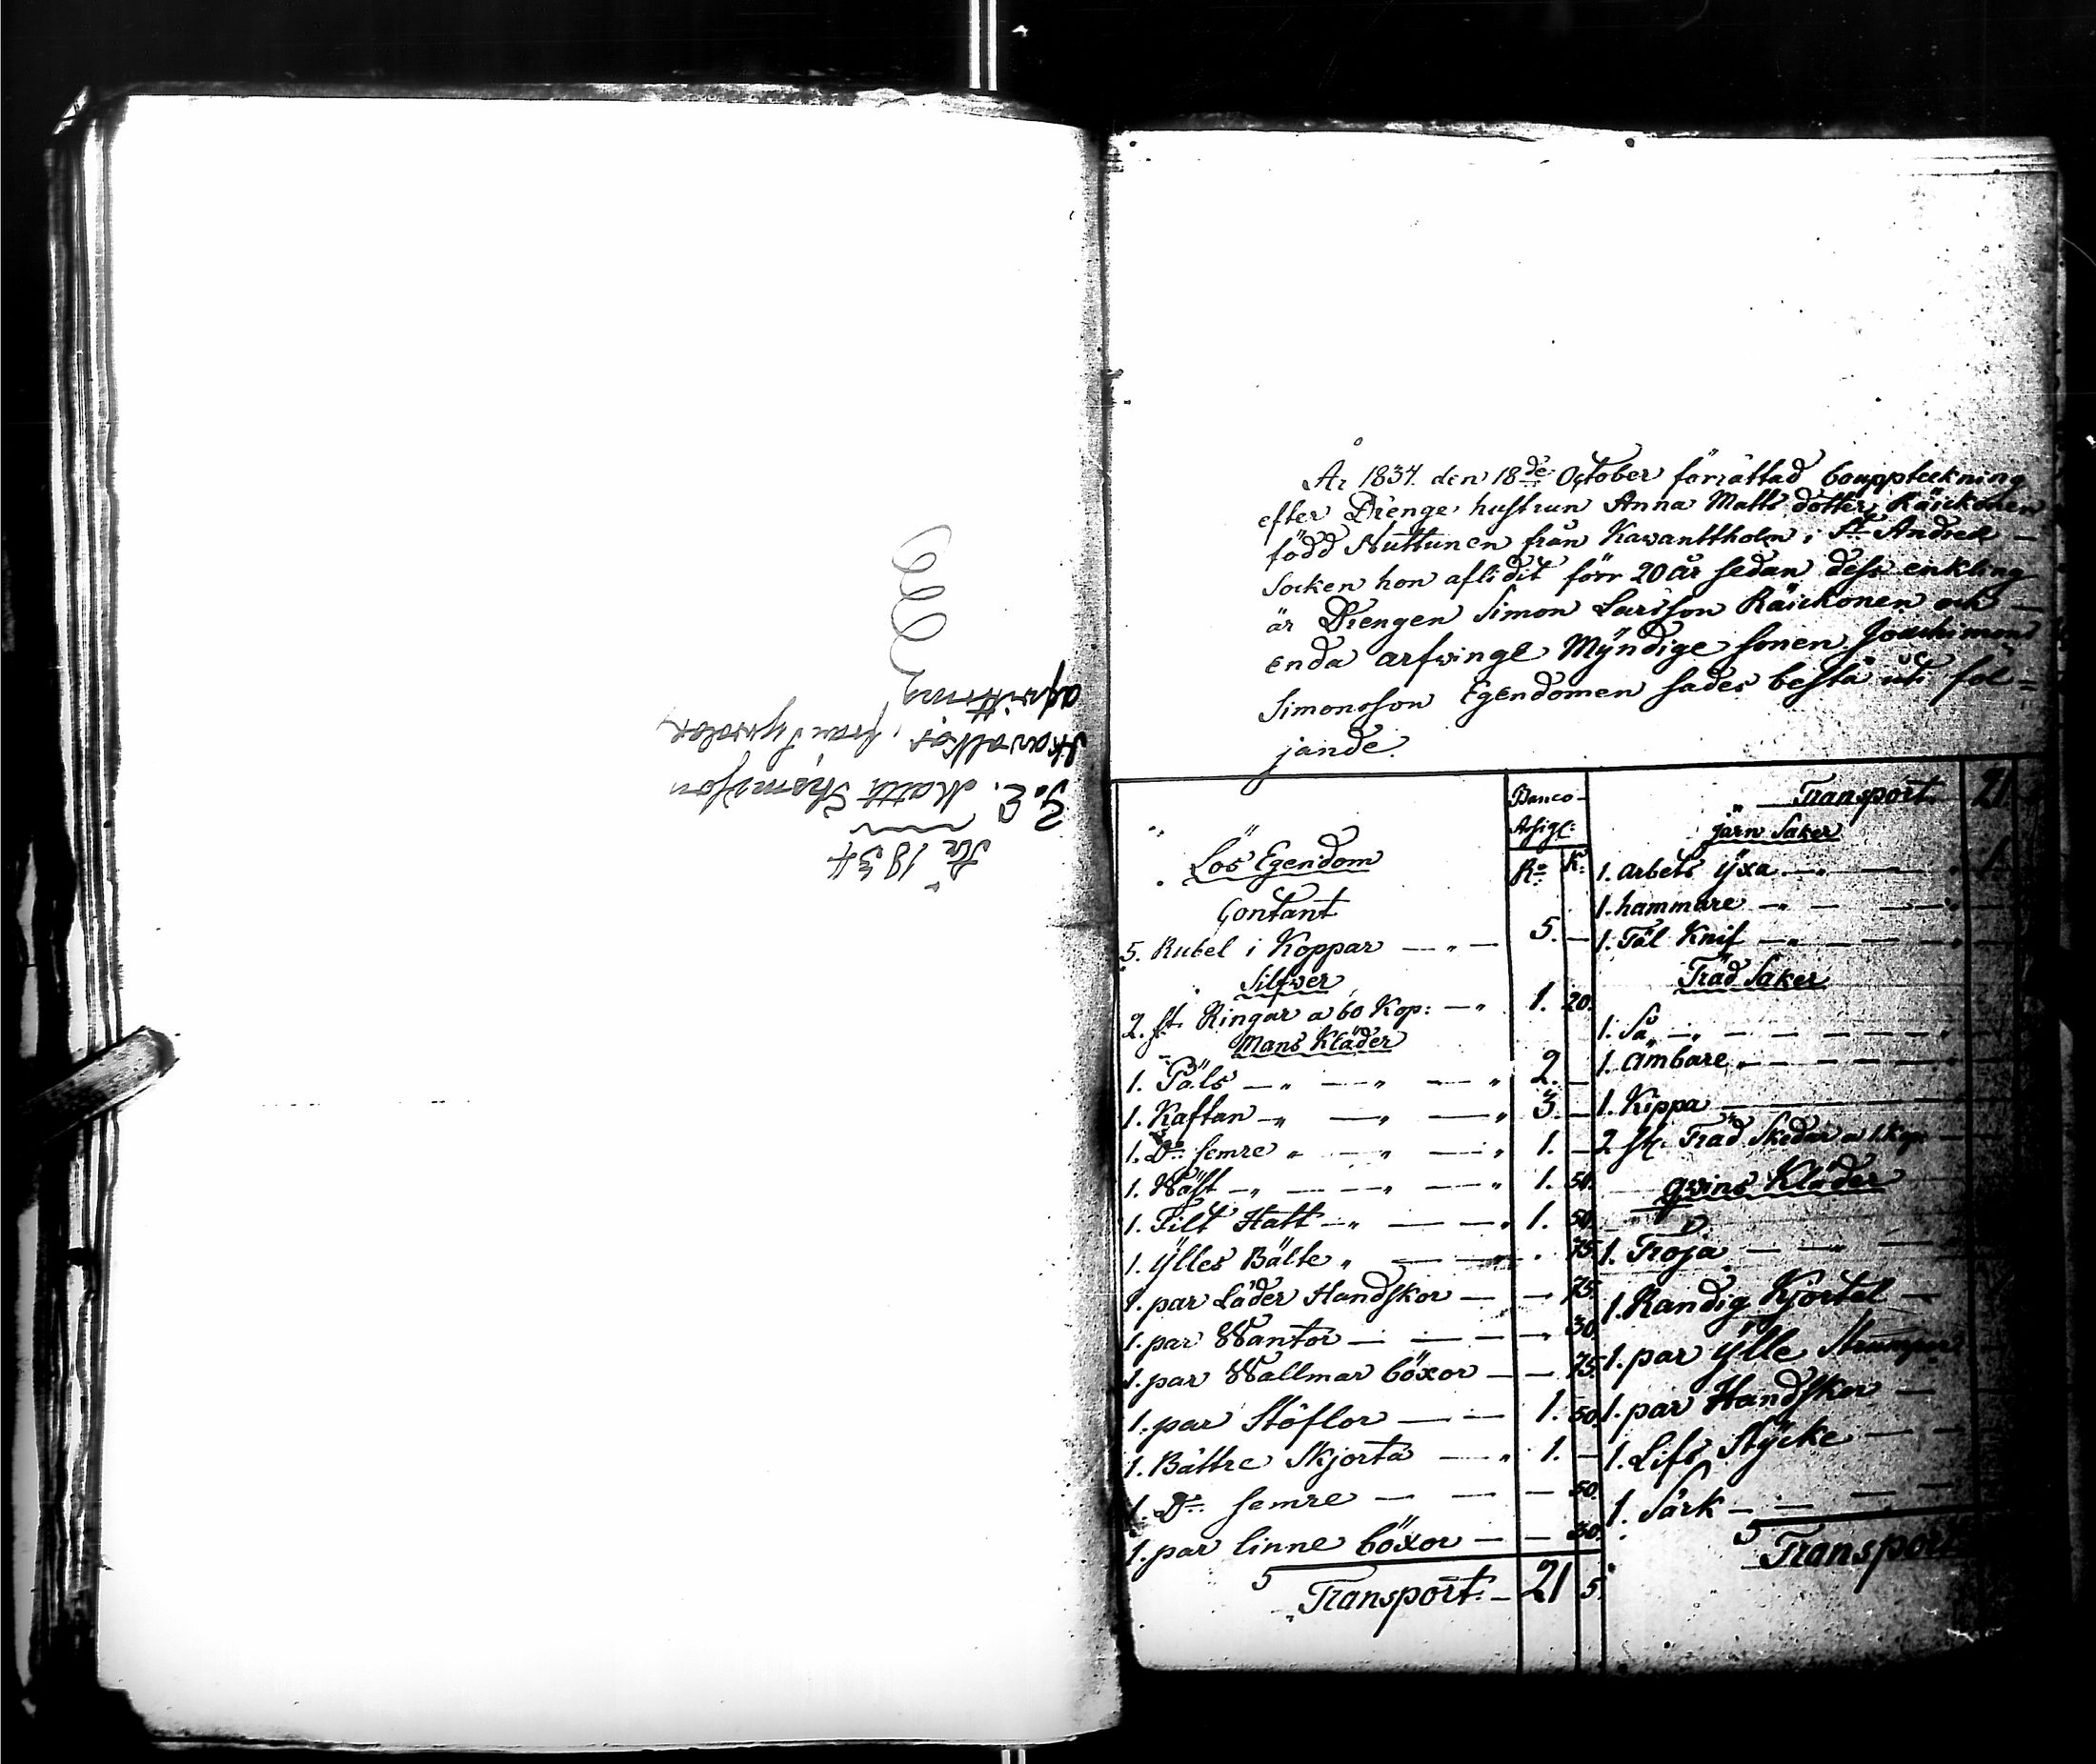 År 1834
G. E. Matts Thomasson
afwittring
År 1834. den 18de October förrättad bouppteckning
efter Drenge hustrun Anna Matts dotter Räickönen
född Nuttunen från Kawanttholm i St Andreæ
Socken hon aflidit förr 20 år sedan dess enkling
är Drengen Simon Larsson Räickonen och
enda arfwinge Myndige sonen Joachim
Simonsson Egendomen sades bestå uti föl=
jande.
Banco
Assigl:
Ro: K:
Lös Egendom
Contant
5. Rubel i Koppar — " — 5. —
Silfwer
2. st. Ringar a 60 Kop: — " 1. 20.
Mans Kläder
1. Päls — " — " — " 2. —
1. Kaftan — " — " — " 3. —
1. Do: semre " — " — " 1. —
1. Wäst — " — — " — " 1. 50.
1. Filt Hatt — " — — " 1. 50.
1. Ylles Bälte " — — " 75.
1. par Läder Handskor — — 75.
1. par Wantor — — — — 30.
1. par Wallmar böxor — — 75.
1. par Stöflor — — 1. 50.
1. Bättre Skjorta — " 1. —
1. Do: semre — — — 50.
1. par linne böxor — — 30.
Transport. — 21 5.
Transport. 21.
Järn Saker
1. arbets Yxa — " — — 1.
1. hammare — " — — —
1. Täl Knif — " — — —
Träd Saker
1. Så — " — — — —
1. Ämbare " — — — —
1. Kippa
2 st. Träd Skedar a 1 kop
qwins Kläder
1. Tröja — — " —
1. Randig Kjortel —
1. par Ylle Strumpor
1. par Handskor —
1. Lif Stycke — —
1. Särk — — — —
Transport